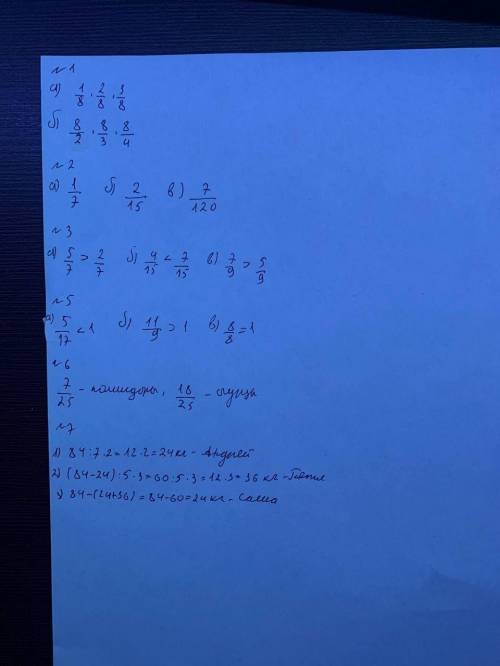 №1
а) 1/8 . 2/8 . 3/8
б) 8/2 . 8/3 . 8/4
№2
а) 1/7. б) 2/15. в) 7/120
№3
а) 5/7 > 2/7 б) 4/15 < 7/15 в) 7/9 > 5/9
№5
а) 5/17 < 1 б) 11/9 > 1 в) 8/8 = 1
№6
7/25 - помидоры, 18/25 - огурцы
№7
1) 84:7·2=12·2=24кг - Андрей
2) (84-24):5·3=60:5·3=12·3=36 кг -
3) 84-(24+36)=84-60=24кг - Саша